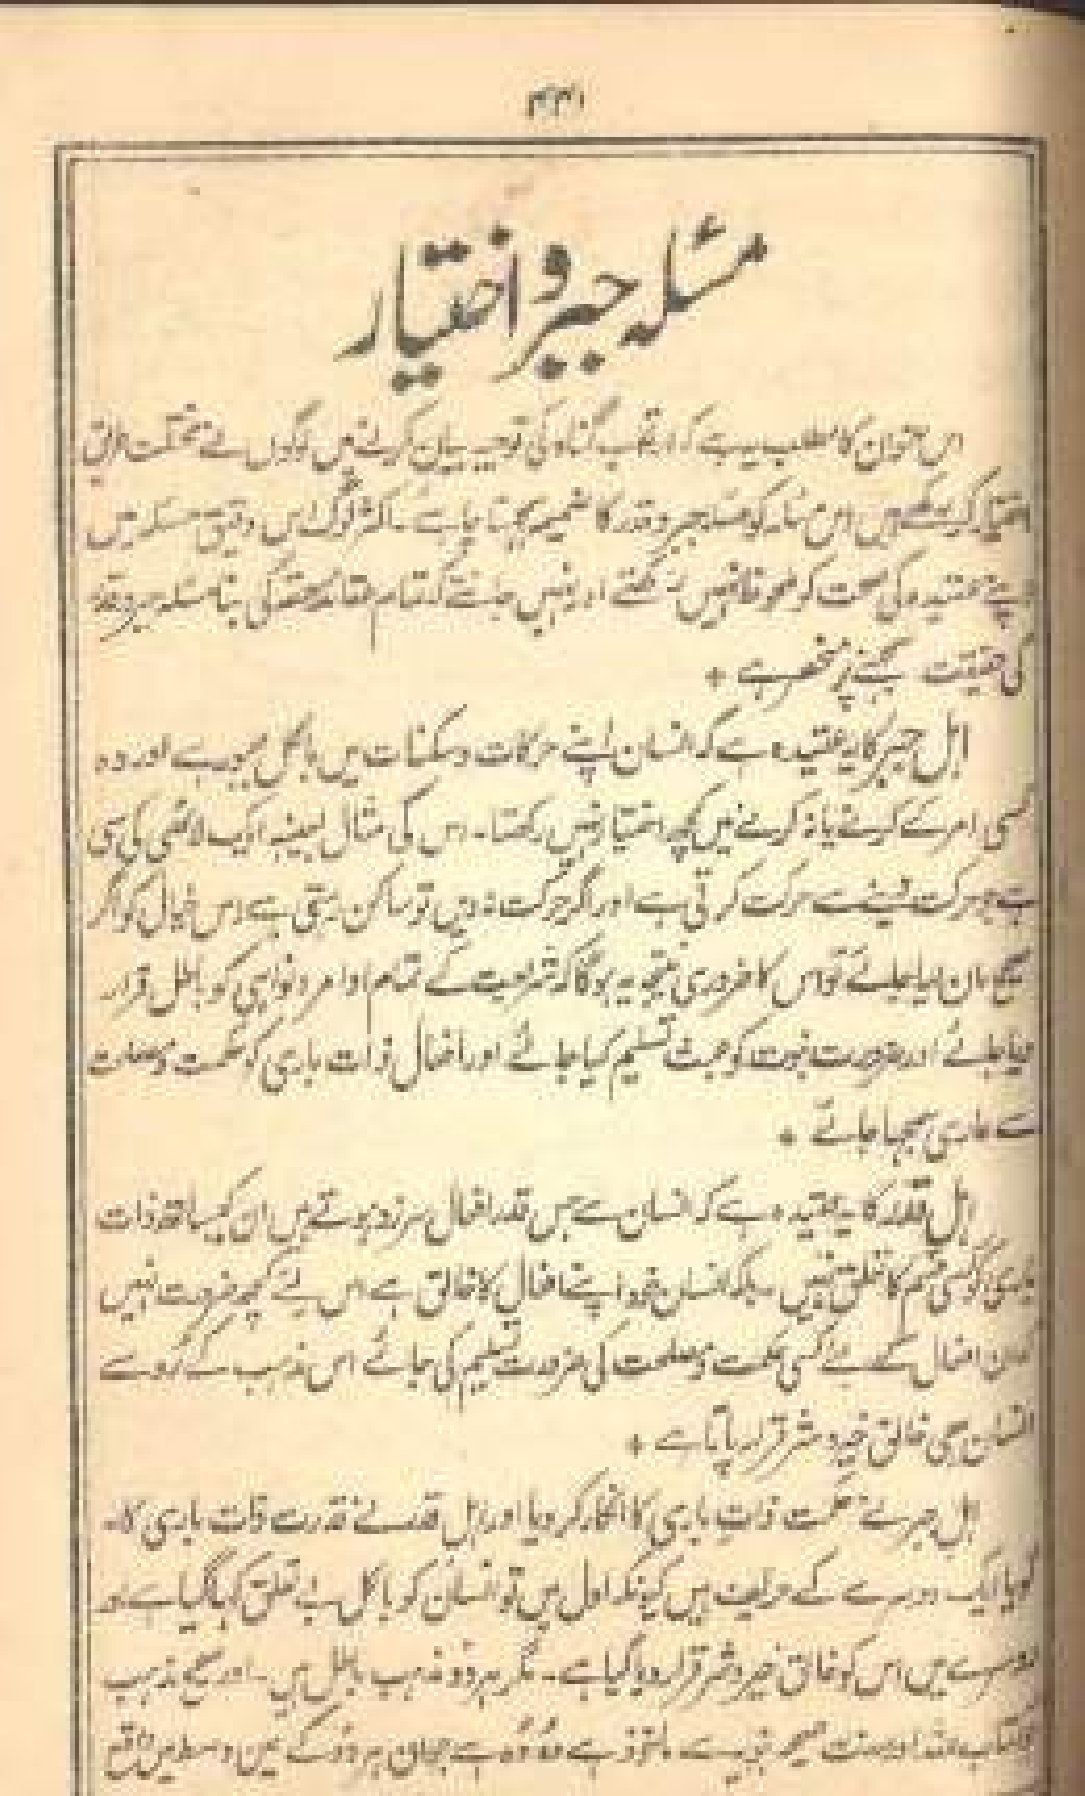 ۴۴۱
مسئلہ جبر و اختیار
اس عنوان کا مطلب یہ ہے کہ ارتکاب گناہ کی توجیہ بیان کرنے میں لوگوں نے مختلف طریق
اختیار کر رکھے ہیں اس مسئلہ کو مسئلہ جبر و قدر کا ضمیمہ سمجہنا چاہئے ۔ اکثر لوگ اس دقیق مسئلہ میں
اپنے عقیدہ کی صحت کو ملحوظ نہیں رکھتے اور نہیں جانتے کہ تمام عقائد حقہ کی بنا مسئلہ جبر و قدر
کی حقیقت سمجہنے پر منحصر ہے *
اہل جبر کا یہ عقیدہ ہے کہ انسان اپنے حرکات و سکنات میں بالکل مجبور ہے اور وہ
کسی امر کے کرنے یا نہ کرنے میں کچھ اختیار نہیں رکھتا ۔ اس کی مثال بعینہٖ ایک لاٹھی کی سی
ہے جو حرکت دینے سے حرکت کرتی ہے اور اگر حرکت نہ دیں تو ساکن رہتی ہے اس خیال کو اگر
صحیح مان لیا جائے تو اس کا ضروری نتیجہ یہ ہوگا کہ شریعت کے تمام اوامر و نواہی کو باطل قرار
دیا جائے اور ضرورت نبوت کو عبث تسلیم کیا جائے اور افعال ذات باری کو حکمت و مصلحت
سے عاری سمجہا جائے *
اہل قدر کا یہ عقیدہ ہے کہ انسان سے جس قدر افعال سرزد ہوتے ہیں ان کیساتھ ذات
باری کو کسی قسم کا تعلق نہیں ۔ بلکہ انسان خود اپنے افعال کا خالق ہے اس لئے کچھ ضرورت نہیں
کہ ان افعال کے لئے کسی حکمت و مصلحت کی ضرورت تسلیم کی جائے اس مذہب کے رو سے
انسان ہی خالق خیر و شر قرار پاتا ہے *
اہل جبر نے حکمت ذات باری کا انکار کر دیا اور اہل قدر نے قدرت ذات باری کا۔
گویا ایک دوسرے کے حریف ہیں کیونکہ اول میں تو انسان کو بالکل بے تعلق کہا گیا ہے اور
دوسرے میں اس کو خالق خیر و شر قرار دیا گیا ہے ۔ مگر ہر دو مذہب باطل ہیں ۔ اور صحیح مذہب
جو کتاب اللہ اور سنت صحیحہ نبویہ سے ماخوذ ہے وہ وُہ ہے جہان ہر دو کے عین وسط میں واقع